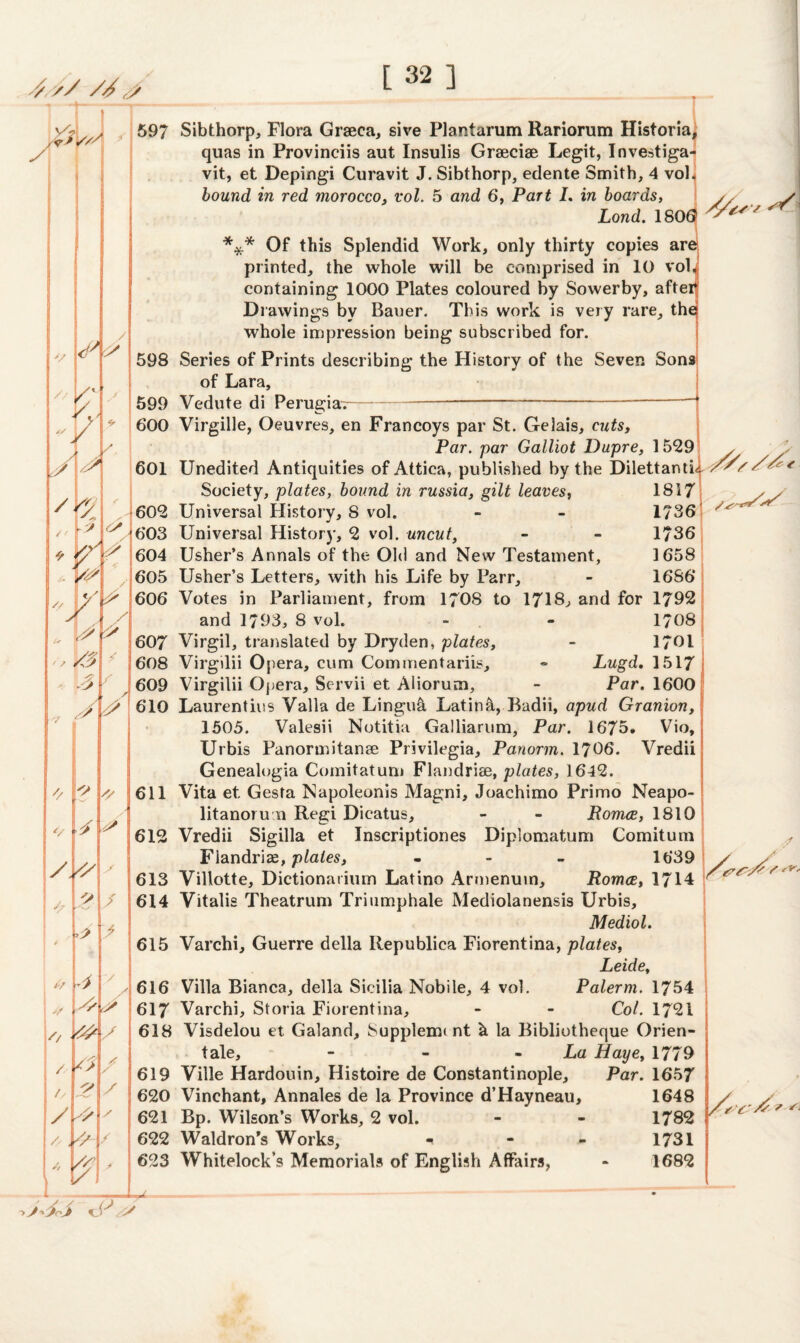 [ 32 ]
597 Sibthorp, Flora Græca, sive Plantarum Rariorum Historia,
quas in Provinciis aut Insulis Græciæ Legit, Investiga-
vit, et Depingi Curavit J. Sibthorp, edente Smith, 4 vol.
bound in red morocco, vol. 5 and 6, Part I. in boards,
Lond. 1806
*** Of this Splendid Work, only thirty copies are
printed, the whole will be comprised in 10 vol.
containing 1000 Plates coloured by Sowerby, after
Drawings by Bauer. This work is very rare, the
whole impression being subscribed for.
598 Series of Prints describing the History of the Seven Sons
of Lara,
599 Vedute di Perugia.
600 Virgille, Oeuvres, en Francoys par St. Gelais, cuts,
Par. par Galliot Dupre, 1529
601 Unedited Antiquities of Attica, published by the Dilettanti
Society, plates, bound in russia, gilt leaves, 1817
602 Universal History, 8 vol. - - 1736
603 Universal History, 2 vol. uncut, - - 1736
604 Usher's Annals of the Old and New Testament, 1658
605 Usher's Letters, with his Life by Parr, - 1686
606 Votes in Parliament, from 1708 to 1718, and for 1792
and 1793, 8 vol. - - 1708
607 Virgil, translated by Dryden, plates, - 1701
608 Virgilii Opera, cum Commentariis, - Lugd. 1517
609 Virgilii Opera, Servii et Aliorum, - Par. 1600
610 Laurentius Valla de Linguâ Latinâ, Badii, apud Granion,
1505. Valesii Notitia Galliarum, Par. 1675. Vio,
Urbis Panormitanæ Privilegia, Panorm. 1706. Vredii
Genealogia Comitatum Flandriæ, plates, 1642.
611 Vita et Gesta Napoleonis Magni, Joachimo Primo Neapo-
litanorum Regi Dicatus, - - Romæ, 1810
612 Vredii Sigilla et Inscriptiones Diplomatum Comitum
Flandriæ, plates, - - - 1639
613 Villotte, Dictionarium Latino Armenum, Romæ, 1714
614 Vitalis Theatrum Triumphale Mediolanensis Urbis,
Mediol.
615 Varchi, Guerre della Republica Fiorentina, plates,
Leide,
616 Villa Bianca, della Sicilia Nobile, 4 vol. Palerm. 1754
617 Varchi, Storia Fiorentina, - - Col. 1721
618 Visdelou et Galand, Supplement à la Bibliotheque Orien-
tale, - - - La Haye, 1779
619 Ville Hardouin, Histoire de Constantinople, Par. 1657
620 Vinchant, Annales de la Province d'Hayneau, 1648
621 Bp. Wilson's Works, 2 vol. - - 1782
622 Waldron's Works, - - - 1731
623 Whitelock's Memorials of English Affairs, - 1682